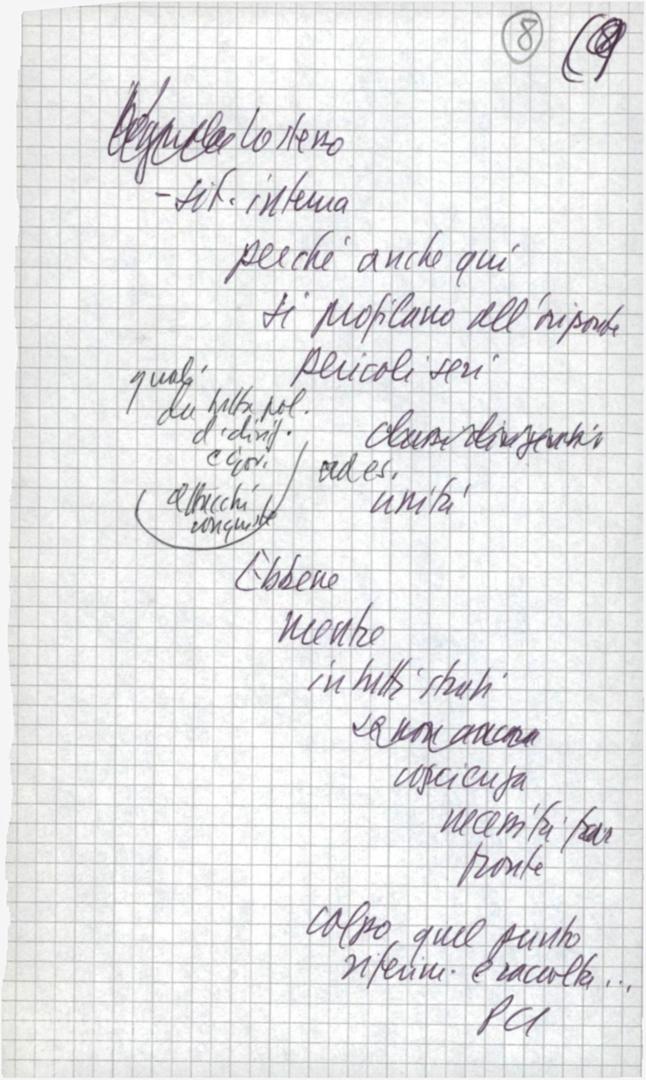 8
lo stesso
- sit. interna
perché anche qui
si profilano all'orizzonte
pericoli seri
quali
da tutta pol.
d. dirig.
e gov.
attacchi
conquiste
ad es.
unità
Ebbene
mentre
in tutti strati
se non ancora
coscienza
necessità far
fronte
colpo quel punto
riferim. e raccolta...
PCI